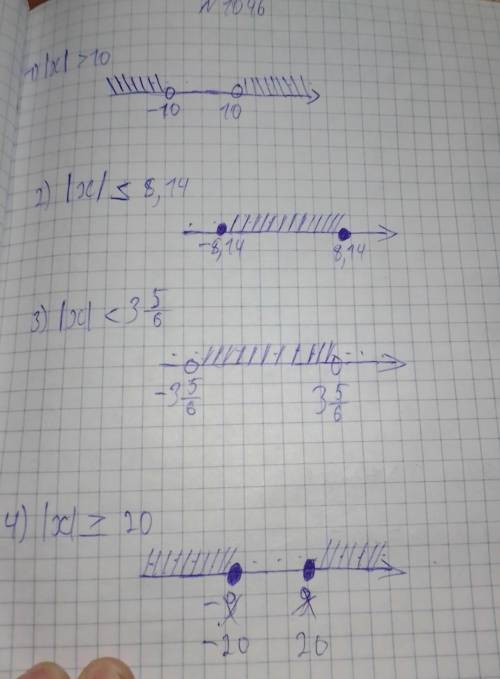 № 1046
1) |x| > 10
-10 10
2) |x| ≤ 8,14
-8,14 8,14
3) |x| < 3 5/6
-3 5/6 3 5/6
4) |x| ≥ 20
-20 20